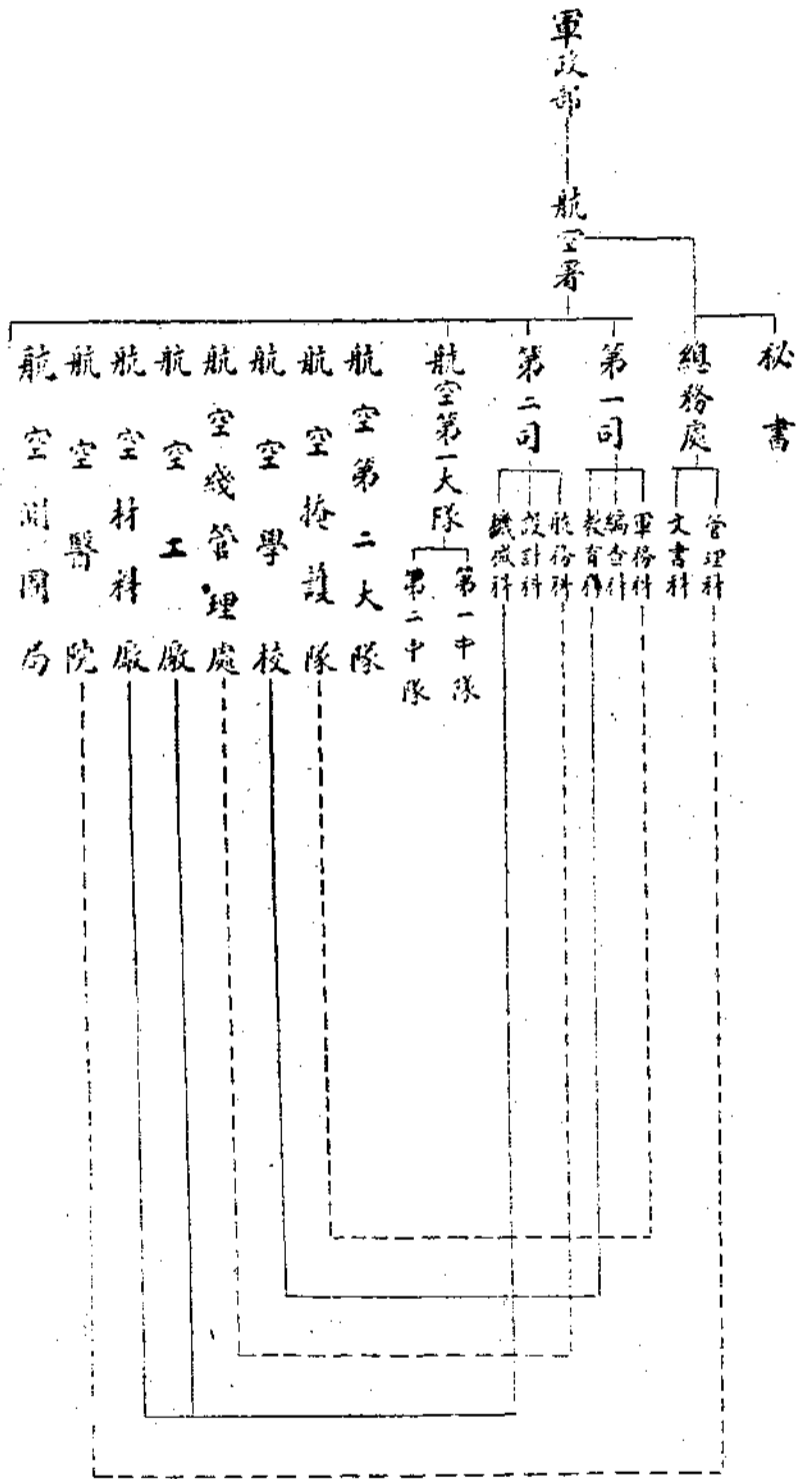 軍政部
航空署
秘書
總務處
管理科
文書科
第一司
軍務科
編查科
教育科
第二司
航務科
設計科
機械科
航空第一大隊
第一中隊
第二中隊
航空第二大隊
航空掩護隊
航空學校
航空線管理處
航空工廠
航空材料廠
航空醫院
航空測圖局